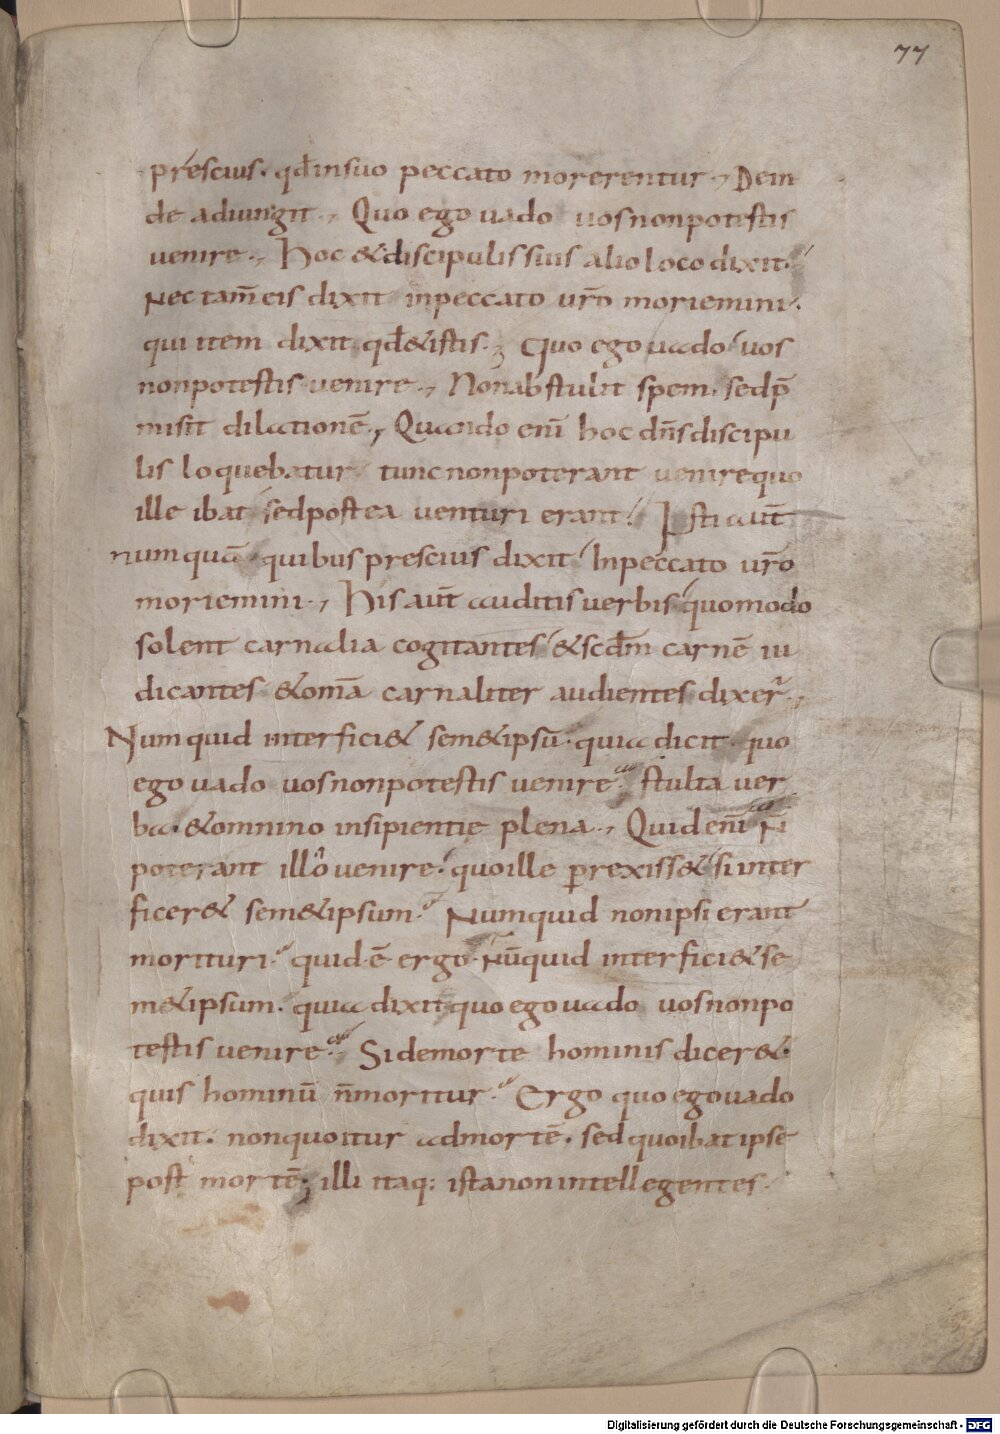 77
prescius· qđ in suo peccato morerentur·, Dein
de adiungit·, Quo ego uado uos non potestis
uenire·, Hoc & discipulis suis alio loco dixit·
Nec tam̄ eis dixit in peccato ur̄o moriemini·
qui item dixit qđ & istis·; Quo ego uado uos
non potestis uenire·, Non abstulit spem· sed p̄
misit dilationē·, Quando eni̅ hoc dn̄s discipu
lis loquebatur tunc non poterant uenire quo
ille ibat sed postea uenturi erant· Isti aut̄
numquā· quibus prescius dixit In peccato ur̄o
moriemini·, His aut̄ auditis uerbis quomodo
solent carnalia cogitantes & scđm carnē iu
dicantes & om̄a carnaliter audientes dixer̄·,
Numquid interfici& sem&ipsū· quia dicit· quo
ego uado uos non potestis uenire· stulta uer
ba· & omnino insipientię plena·, Quid eni̅ n̄
poterant illo uenire· quo ille perrexiss& si inter
ficer& sem&ipsum· Numquid non ipsi erant
morituri· quid ē ergo· Nūquid interfici& se
m&ipsum· quia dixit quo ego uado uos non po
testis uenire· Si de morte hominis dicer&·
quis hominū n̄ moritur· Ergo quo ego uado
dixit· non quo itur ad mortē· sed quo ibat ipse
post mortē; illi itaq: ista non intellegentes·
Digitalisierung gefördert durch die Deutsche Forschungsgemeinschaft - DFG